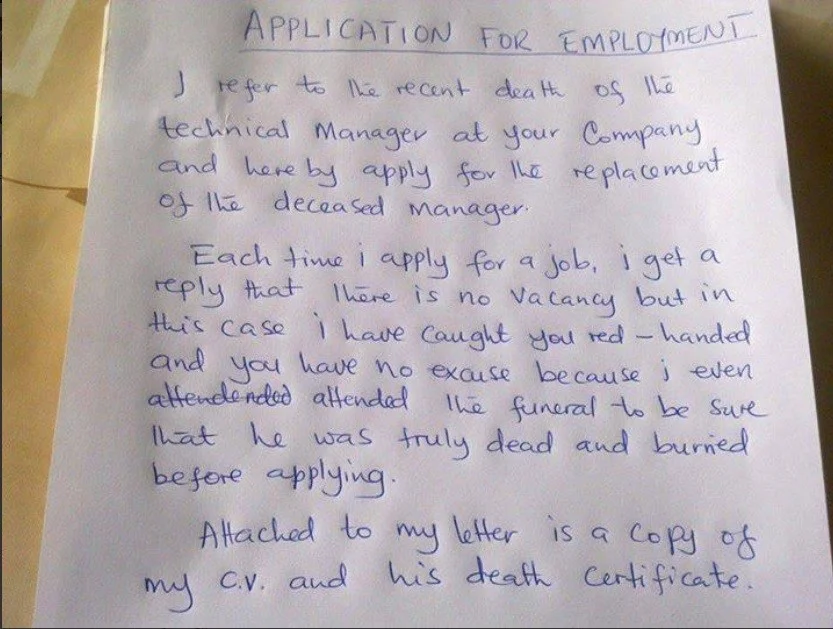 APPLICATION FOR EMPLOYMENT
I refer to the recent death of the
technical Manager at your Commpany
and here by apply for the replacement
of the deceased manager.
Each time i apply for a job, i get a
reply that there is no vacancy but in
this case i have caught you red-handed
and you have no excuse because i even
attendended attended the funeral to be sure
that he was truly dead and burried
before applying.
Attached to my letter is a copy of
my C.V. and his death certificate.